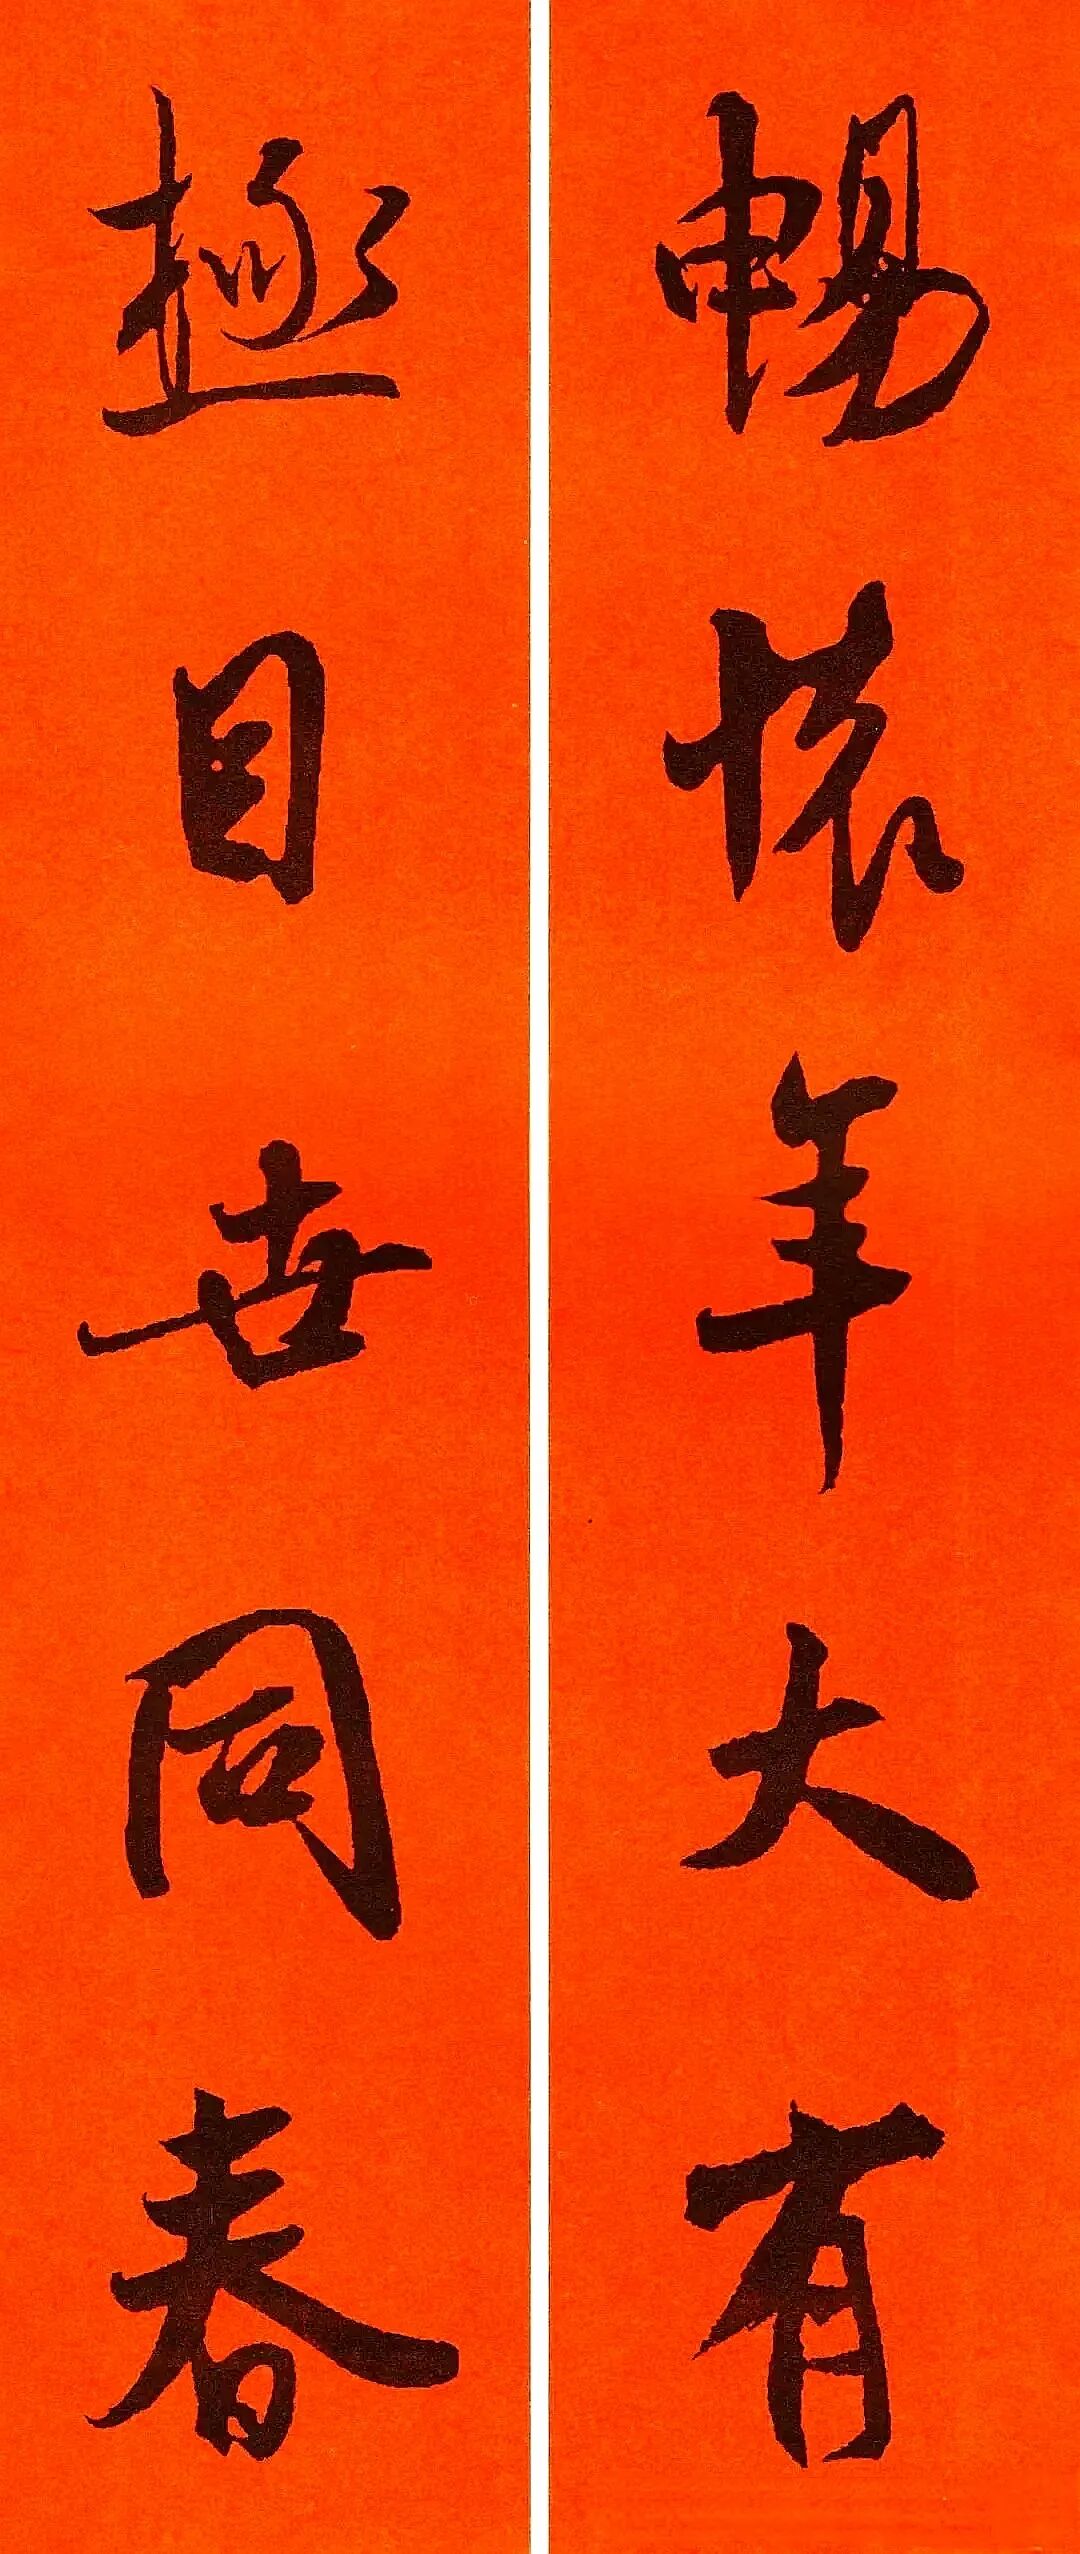 暢懷年大有
極目世同春